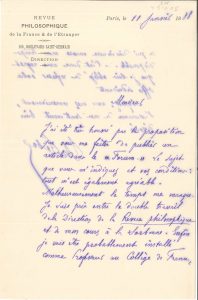 REVUE
PHILOSOPHIQUE
de la France & de l'Étranger
108, BOULEVARD SAINT-GERMAIN
DIRECTION
Paris, le 11 janvier 1888
Monsieur
J'ai été très honoré par la proposition
que vous me faites de publier un
article dans le « Forum ». Le sujet
que vous m'indiquez et vos conditions,
tout m'est également agréable.
Malheureusement le temps me manque.
Je suis pris entre le double travail
de la Direction de la Revue philosophique
et de mon cours à la Sorbonne. Enfin
je vais être probablement installé
comme Professeur au Collège de France,